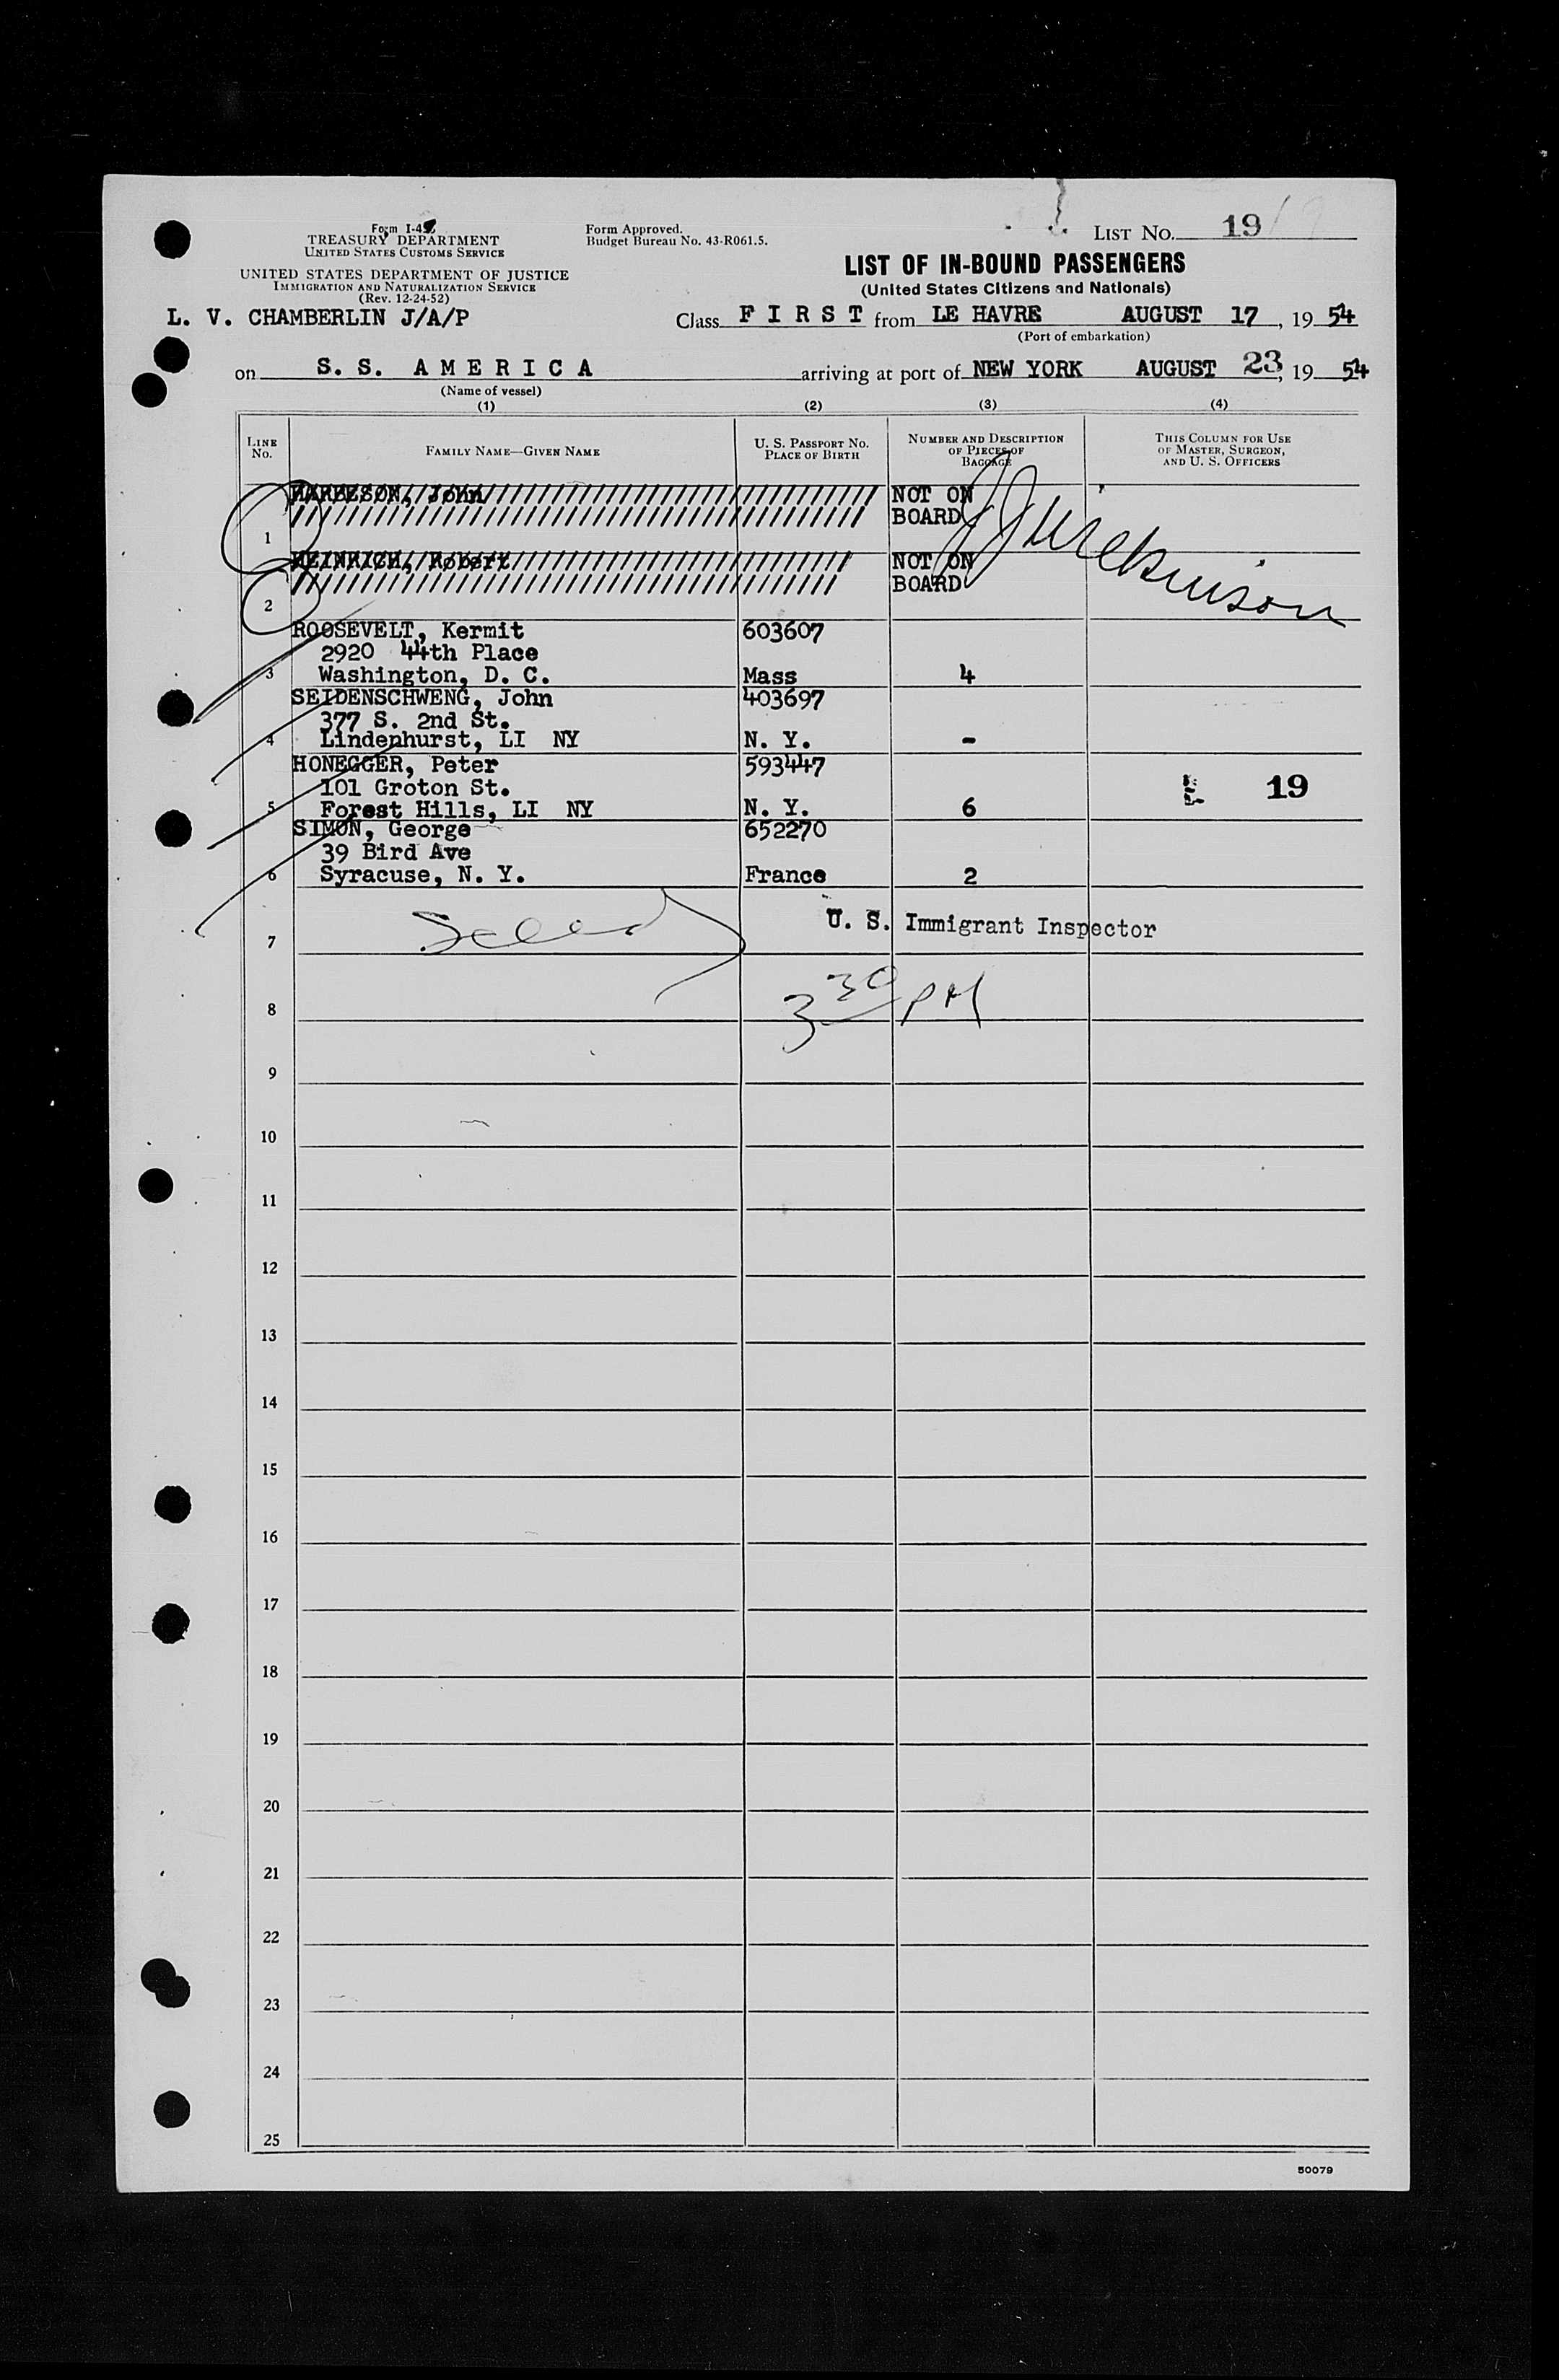 Form I-4
TREASURY DEPARTMENT
UNITED STATES CUSTOMS SERVICE
UNITED STATES DEPARTMENT OF JUSTICE
IMMIGRATION AND NATURALIZATION SERVICE
(Rev. 12-24-52)
Form Approved.
Budget Bureau No. 43-R061.5.
LIST NO. 19
LIST OF IN-BOUND PASSENGERS
(United States Citizens and Nationals)
L. V. CHAMBERLIN J/A/P
Class FIRST from LE HAVRE AUGUST 17, 19 54
(Port of embarkation)
on S. S. AMERICA arriving at port of NEW YORK AUGUST 23, 19 54
(Name of vessel)
(1) (2) (3) (4)
LINE NO. FAMILY NAME—GIVEN NAME U. S. PASSPORT NO. PLACE OF BIRTH NUMBER AND DESCRIPTION OF PIECES OF BAGGAGE THIS COLUMN FOR USE OF MASTER, SURGEON, AND U. S. OFFICERS
John NOT ON
BOARD
1
HEINRICH, Robert NOT ON
BOARD
2
ROOSEVELT, Kermit 603607
2920 44th Place
3 Washington, D. C. Mass 4
SEIDENSCHWENG, John 403697
377 S. 2nd St.
4 Lindenhurst, LI NY N. Y. -
HONEGGER, Peter 593447
101 Groton St. 19
5 Forest Hills, LI NY N. Y. 6
SIMON, George 652270
39 Bird Ave
6 Syracuse, N. Y. France 2
U. S. Immigrant Inspector
7
3 30 PM
8
9
10
11
12
13
14
15
16
17
18
19
20
21
22
23
24
25
50079